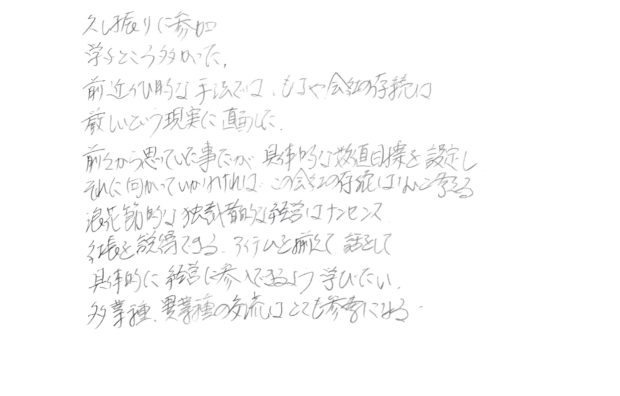 久し振りに参加
学ぶところ多かった。
前近代的な手法では、もはや会社の存続は
厳しいという現実に直面した。
前々から思っていた事だが、具体的な数値目標を設定し
それに向かっていかなければ、この会社の存続はないと考える
浪花節的な独裁者的な経営はナンセンス
社長を説得できる、アイテムを揃えて 話をして
具体的に 経営に参入できるよう 学びたい。
多業種、異業種の交流はとても参考になる。